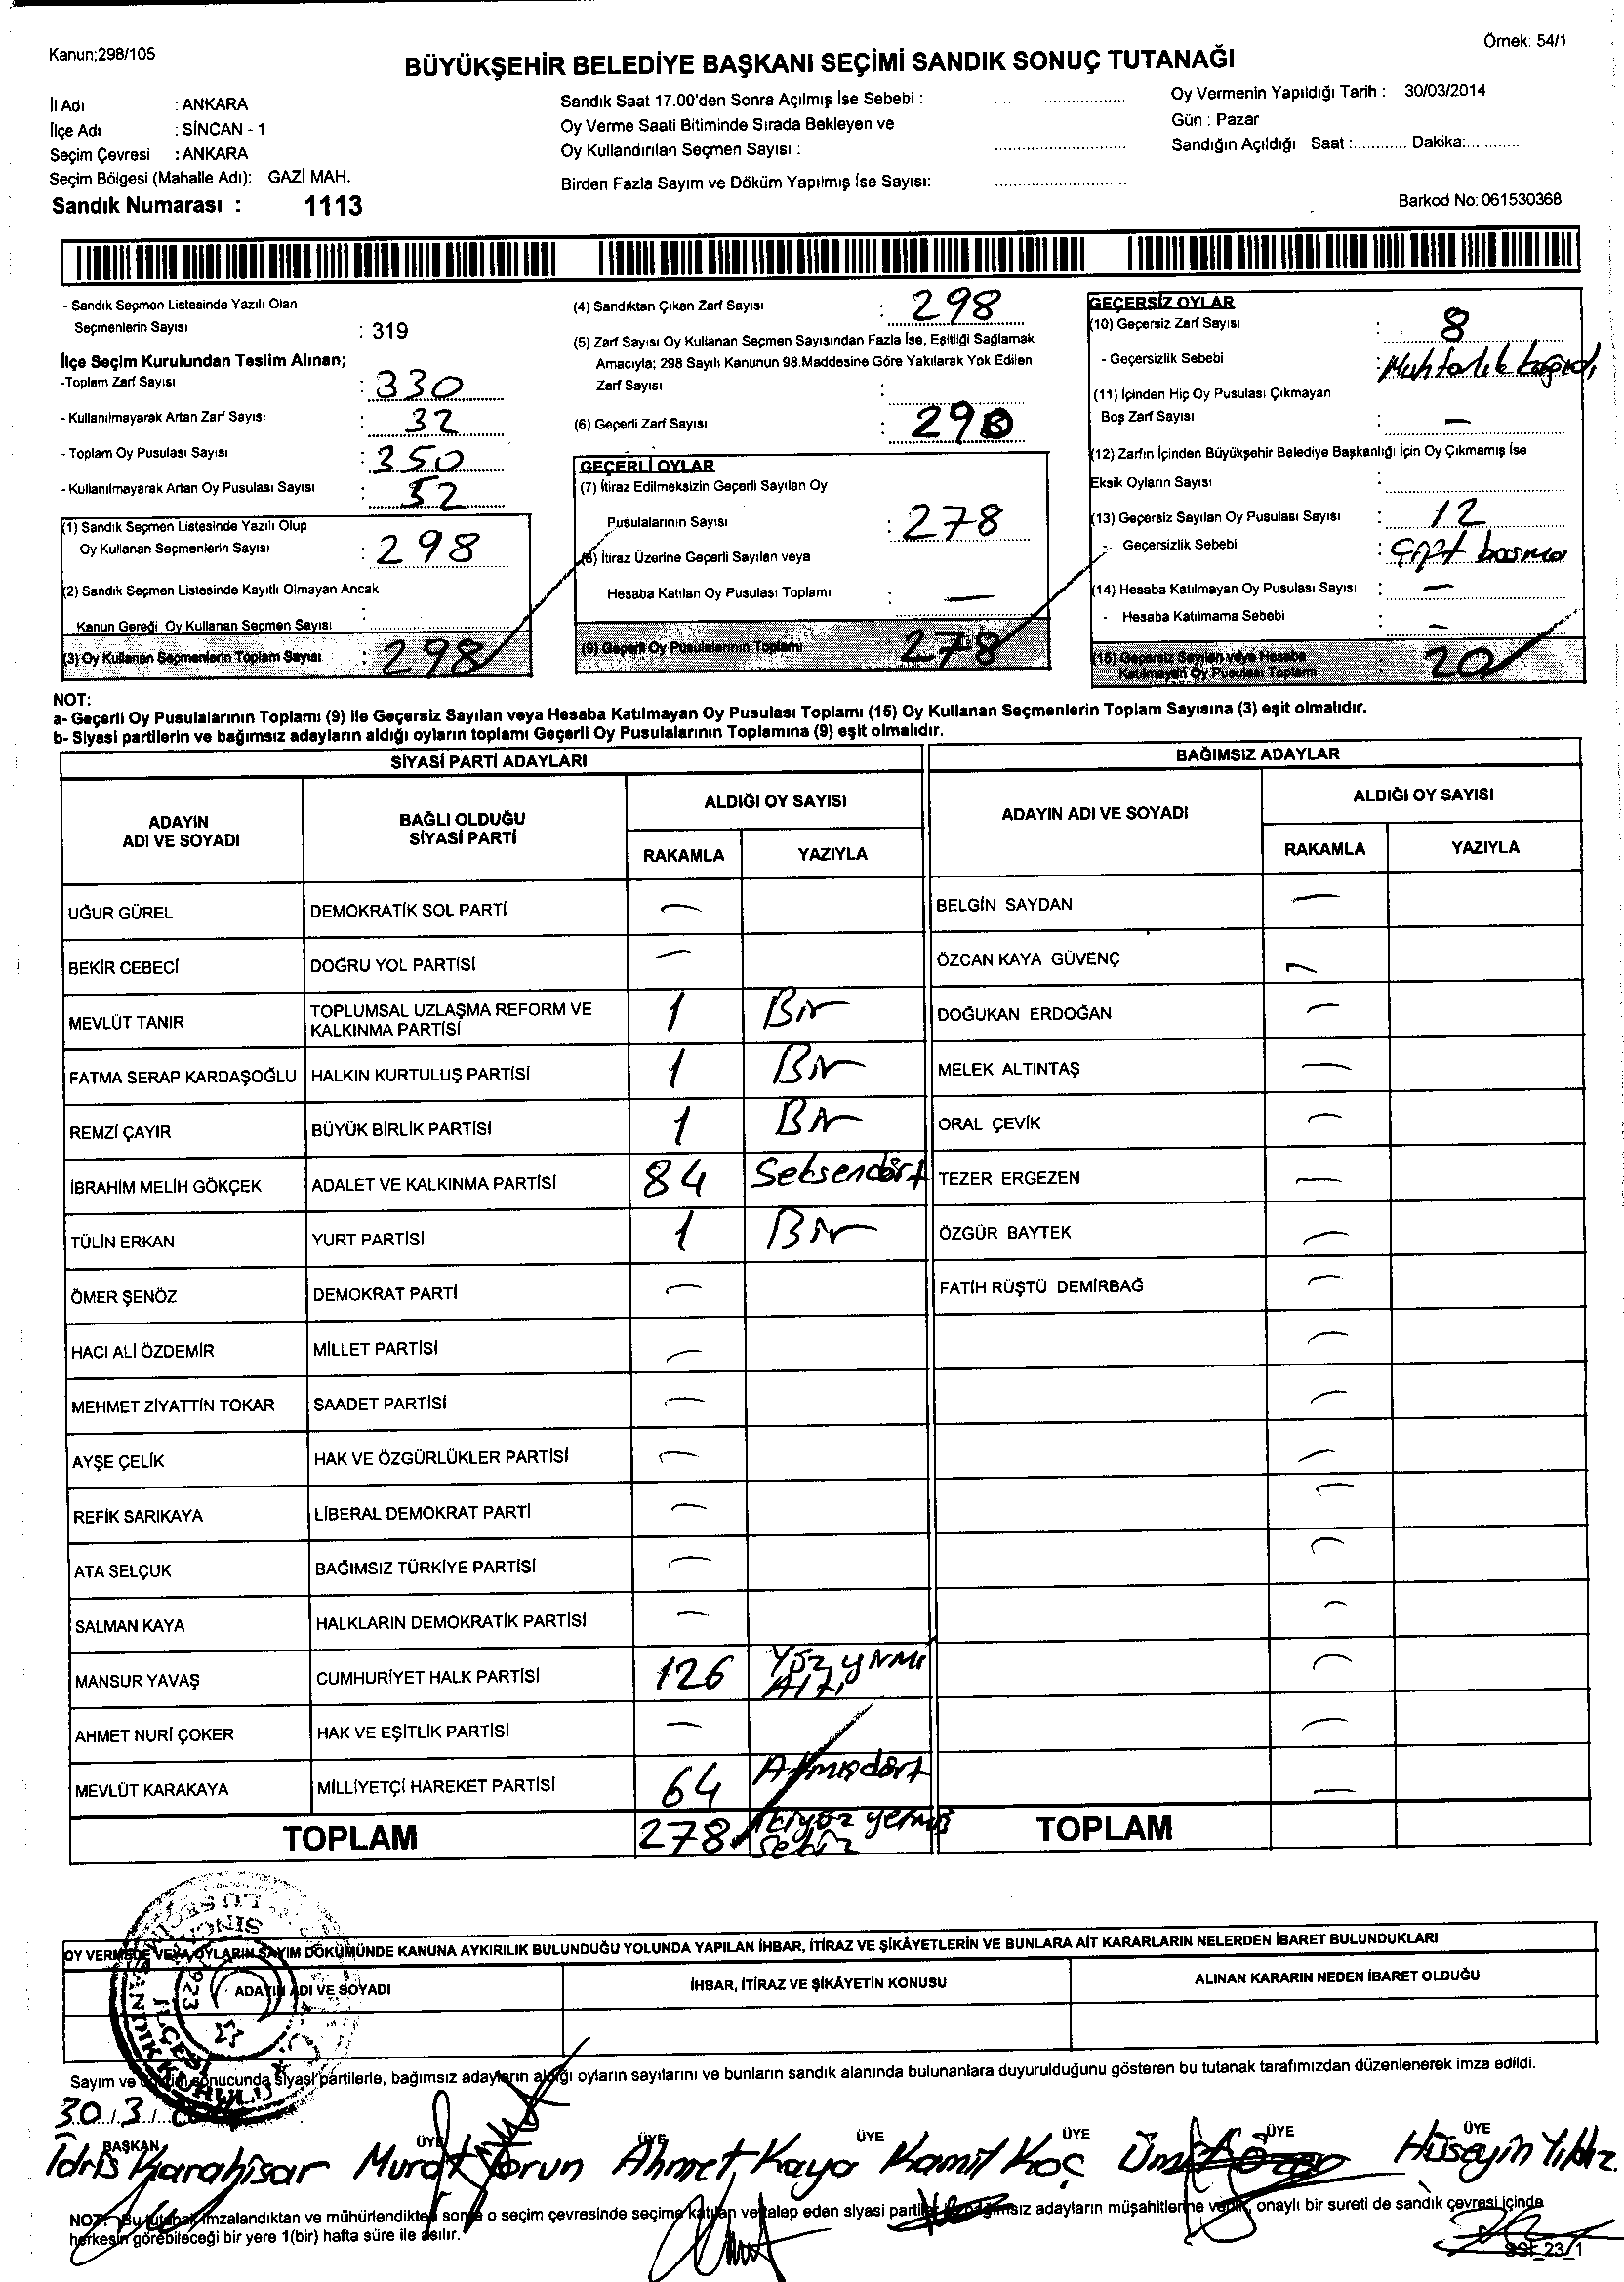 Kanun;298/105
Örnek: 54/1
BÜYÜKŞEHİR BELEDİYE BAŞKANI SEÇİMİ SANDIK SONUÇ TUTANAĞI
İl Adı : ANKARA
İlçe Adı : SİNCAN - 1
Seçim Çevresi : ANKARA
Seçim Bölgesi (Mahalle Adı): GAZİ MAH.
Sandık Numarası : 1113
Sandık Saat 17.00'den Sonra Açılmış İse Sebebi :
Oy Verme Saati Bitiminde Sırada Bekleyen ve
Oy Kullandırılan Seçmen Sayısı :
Birden Fazla Sayım ve Döküm Yapılmış İse Sayısı:
Oy Vermenin Yapıldığı Tarih : 30/03/2014
Gün : Pazar
Sandığın Açıldığı Saat :............ Dakika:............
Barkod No: 061530368
- Sandık Seçmen Listesinde Yazılı Olan
Seçmenlerin Sayısı : 319
İlçe Seçim Kurulundan Teslim Alınan;
-Toplam Zarf Sayısı : 330
- Kullanılmayarak Artan Zarf Sayısı : 32
- Toplam Oy Pusulası Sayısı : 350
- Kullanılmayarak Artan Oy Pusulası Sayısı : 52
(1) Sandık Seçmen Listesinde Yazılı Olup
Oy Kullanan Seçmenlerin Sayısı : 298
(2) Sandık Seçmen Listesinde Kayıtlı Olmayan Ancak
Kanun Gereği Oy Kullanan Seçmen Sayısı :
(3) Oy Kullanan Seçmenlerin Toplam Sayısı : 298
(4) Sandıktan Çıkan Zarf Sayısı : 298
(5) Zarf Sayısı Oy Kullanan Seçmen Sayısından Fazla İse, Eşitliği Sağlamak
Amacıyla; 298 Sayılı Kanunun 98.Maddesine Göre Yakılarak Yok Edilen
Zarf Sayısı :
(6) Geçerli Zarf Sayısı : 290
GEÇERLİ OYLAR
(7) İtiraz Edilmeksizin Geçerli Sayılan Oy
Pusulalarının Sayısı : 278
(8) İtiraz Üzerine Geçerli Sayılan veya
Hesaba Katılan Oy Pusulası Toplamı : —
(9) Geçerli Oy Pusulalarının Toplamı 278
GEÇERSİZ OYLAR
(10) Geçersiz Zarf Sayısı : 8
- Geçersizlik Sebebi : Muhtarlık kağıdı
(11) İçinden Hiç Oy Pusulası Çıkmayan
Boş Zarf Sayısı : —
(12) Zarfın İçinden Büyükşehir Belediye Başkanlığı İçin Oy Çıkmamış İse
Eksik Oyların Sayısı :
(13) Geçersiz Sayılan Oy Pusulası Sayısı : 12
- Geçersizlik Sebebi : Çift basma
(14) Hesaba Katılmayan Oy Pusulası Sayısı : —
- Hesaba Katılmama Sebebi : —
(15) Geçersiz Sayılan veya Hesaba
Katılmayan Oy Pusulası Toplamı : 20
NOT:
a- Geçerli Oy Pusulalarının Toplamı (9) ile Geçersiz Sayılan veya Hesaba Katılmayan Oy Pusulası Toplamı (15) Oy Kullanan Seçmenlerin Toplam Sayısına (3) eşit olmalıdır.
b- Siyasi partilerin ve bağımsız adayların aldığı oyların toplamı Geçerli Oy Pusulalarının Toplamına (9) eşit olmalıdır.
SİYASİ PARTİ ADAYLARI BAĞIMSIZ ADAYLAR
ADAYIN ADI VE SOYADI BAĞLI OLDUĞU SİYASİ PARTİ ALDIĞI OY SAYISI ADAYIN ADI VE SOYADI ALDIĞI OY SAYISI
RAKAMLA YAZIYLA RAKAMLA YAZIYLA
UĞUR GÜREL DEMOKRATİK SOL PARTİ — BELGİN SAYDAN —
BEKİR CEBECİ DOĞRU YOL PARTİSİ — ÖZCAN KAYA GÜVENÇ —
MEVLÜT TANIR TOPLUMSAL UZLAŞMA REFORM VE KALKINMA PARTİSİ 1 Bir DOĞUKAN ERDOĞAN —
FATMA SERAP KARDAŞOĞLU HALKIN KURTULUŞ PARTİSİ 1 Bir MELEK ALTINTAŞ —
REMZİ ÇAYIR BÜYÜK BİRLİK PARTİSİ 1 Bir ORAL ÇEVİK —
İBRAHİM MELİH GÖKÇEK ADALET VE KALKINMA PARTİSİ 84 Seksendört TEZER ERGEZEN —
TÜLİN ERKAN YURT PARTİSİ 1 Bir ÖZGÜR BAYTEK —
ÖMER ŞENÖZ DEMOKRAT PARTİ — FATİH RÜŞTÜ DEMİRBAĞ —
HACI ALİ ÖZDEMİR MİLLET PARTİSİ — —
MEHMET ZİYATTİN TOKAR SAADET PARTİSİ — —
AYŞE ÇELİK HAK VE ÖZGÜRLÜKLER PARTİSİ — —
REFİK SARIKAYA LİBERAL DEMOKRAT PARTİ — —
ATA SELÇUK BAĞIMSIZ TÜRKİYE PARTİSİ — —
SALMAN KAYA HALKLARIN DEMOKRATİK PARTİSİ — —
MANSUR YAVAŞ CUMHURİYET HALK PARTİSİ 126 Yüz yirmi Altı —
AHMET NURİ ÇOKER HAK VE EŞİTLİK PARTİSİ — —
MEVLÜT KARAKAYA MİLLİYETÇİ HAREKET PARTİSİ 64 Atmışdört —
TOPLAM 278 ikiyüz yetmiş sekiz TOPLAM
OY VERMEDE VEYA OYLARIN SAYIM DÖKÜMÜNDE KANUNA AYKIRILIK BULUNDUĞU YOLUNDA YAPILAN İHBAR, İTİRAZ VE ŞİKÂYETLERİN VE BUNLARA AİT KARARLARIN NELERDEN İBARET BULUNDUKLARI
ADAYIN ADI VE SOYADI İHBAR, İTİRAZ VE ŞİKÂYETİN KONUSU ALINAN KARARIN NEDEN İBARET OLDUĞU
SİNCAN
1923
İLÇESİ
SANDIK KURULU
Sayım ve döküm sonucunda siyasi partilerle, bağımsız adayların aldığı oyların sayılarını ve bunların sandık alanında bulunanlara duyurulduğunu gösteren bu tutanak tarafımızdan düzenlenerek imza edildi.
30/3/
BAŞKAN ÜYE ÜYE ÜYE ÜYE ÜYE ÜYE
İdris Karahisar Murat Torun Ahmet Kaya Kamil Koç Ümit Özen Hüseyin Yıldız
NOT: Bu tutanak imzalandıktan ve mühürlendikten sonra o seçim çevresinde seçime katılan ve talep eden siyasi partiler ve bağımsız adayların müşahitlerine verilir, onaylı bir sureti de sandık çevresi içinde
herkesin görebileceği bir yere 1(bir) hafta süre ile asılır.
SSt_23_1